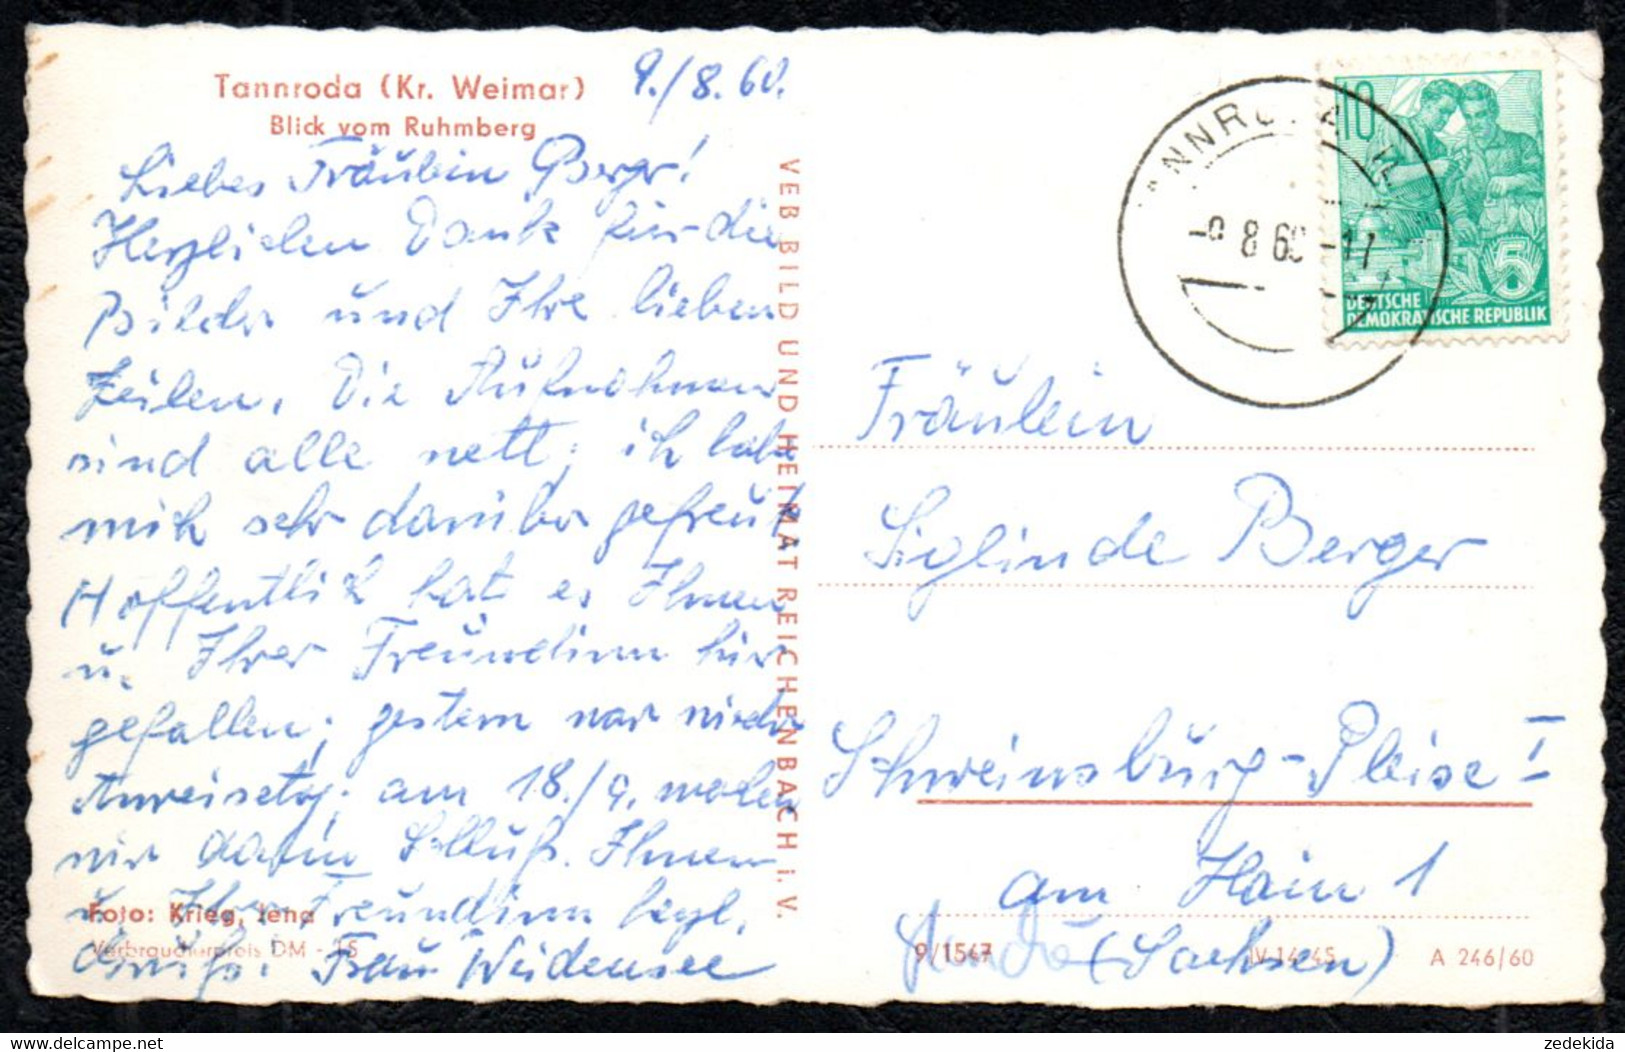 Tannroda (Kr. Weimar)
Blick vom Ruhmberg
9./8.60.
Liebes Fräulein Berger!
Herzlichen Dank für die
Bilder und Ihre lieben
Zeilen. Die Aufnahmen
sind alle nett; ich habe
mich sehr darüber gefreut
Hoffentlich hat es Ihnen
u. Ihrer Freundinn hier
gefallen; gestern war wieder
Anreisetag; am 18./9. machen
wir dann Schluß. Ihnen
u. Ihrer Freundinn herzl.
Grüße. Frau Weidensee
Foto: Krieg, Jena
Verbraucherpreis DM -,15
VEB BILD UND HEIMAT REICHENBACH i. V.
-9.8.60-17
10
5
DEUTSCHE
DEMOKRATISCHE REPUBLIK
Fräulein
Siglinde Berger
Schweinsburg-Pleise I
am Hain 1
(Sachsen)
9/1547 IV-14-45 A 246/60
zedekida